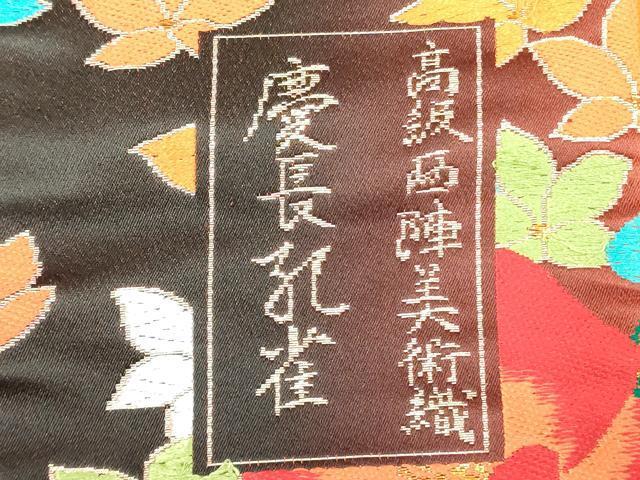 高級西陣美術織
慶長孔雀